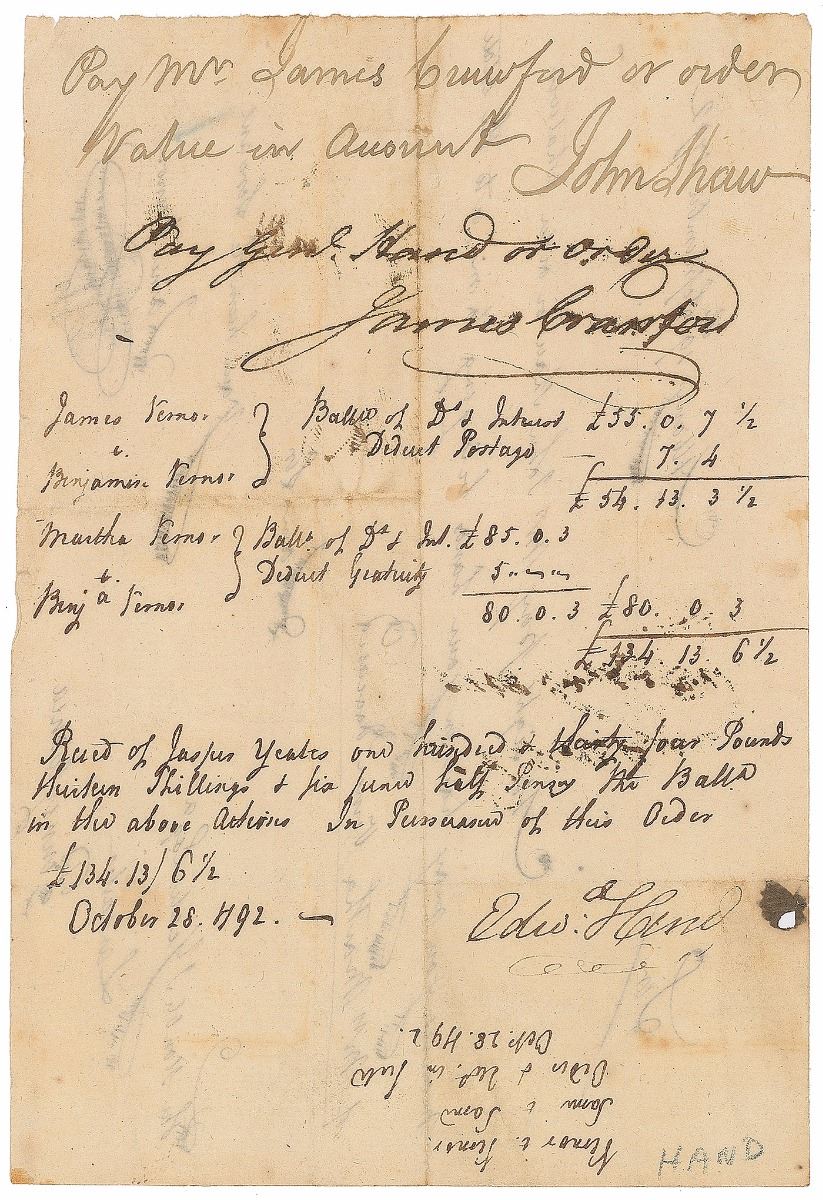 Pay Mr. James Crawford or order
Value in Account John Shaw
Pay Genl. Hand or order
James Crawford
James Vernor } Ballce of Dt & Interest £55. 0. 7 ½
v. Deduct Postage — 7. 4
Benjamin Vernor £54. 13. 3 ½
Martha Vernor } Balla. of Dt & Int. £85. 0. 3
v. Deduct Gratuity 5
Benja Vernor 80. 0. 3 £80. 0 3
£134 13 6 ½
Recd of Jasper Yeates one hundred & thirty four Pounds
thirteen Shillings & six pence half Penny the Balla
in the above Actions In Pursuance of this Order
£134. 13/ 6 ½
October 28. 1792. —
Edwd: Hand
Vernor v. Vernor
Same v. Same
Order & Rect. in full
Octr. 28. 1792.
HAND